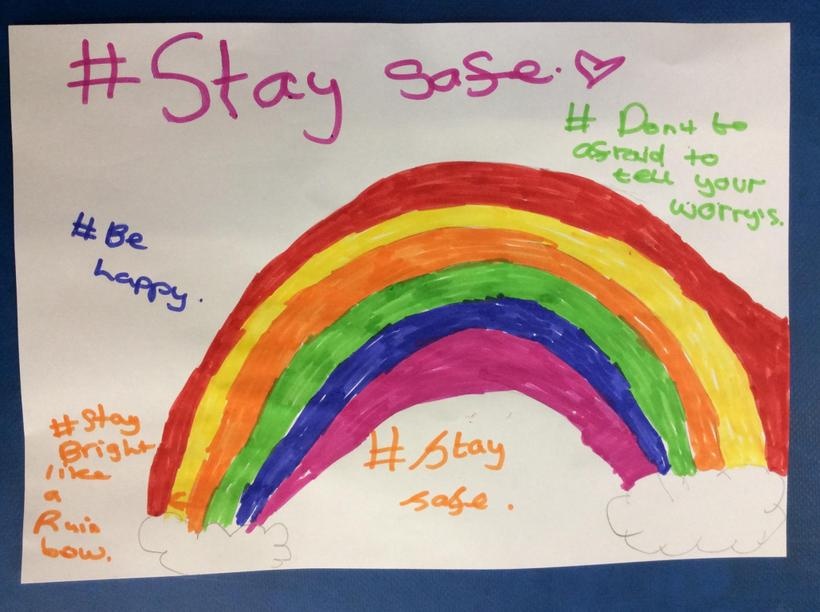 #Stay safe.
# Dont be
afraid to
tell your
worry's.
#Be
happy.
#Stay
Bright
like
a
Rain
bow.
#Stay
safe.